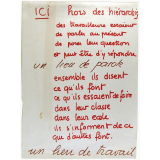 ICI hors des hiérarchies
des travailleurs essaient
de parler au présent
de poser leur question
et peut être d'y répondre
un lieu de parole
ensemble ils disent
ce qu'ils font
ce qu'ils essaient de faire
dans leur classe
dans leur école
ils s'informent de ce
que d'autres font.
un lieu de travail